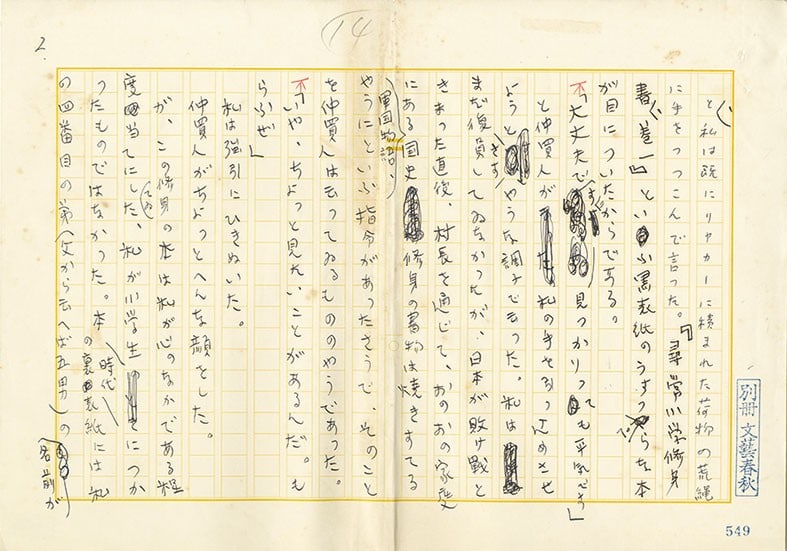 2
14
と、私は既にリヤカーに積まれた荷物の荒縄
に手をつつこんで言つた。『尋常小学修身
書、巻一』といふ黒表紙のうすつぺらな本
が目についたからである。
「大丈夫です。見つかりつても平気です」
と仲買人が私の手をひつ込めさせ
ようとするやうな調子で云つた。私は
まだ復員してゐなかつたが、日本が敗け戦と
きまつた直後、村長を通じて、おのおの家庭
にある国史修身の書物は焼きすてる
軍国物語、
やうにといふ指令があつたさうで、そのこと
を仲買人は云つてゐるもののやうであつた。
「いや、ちよつと見たいことがあるんだ。も
らふぜ」
私は強引にひきぬいた。
仲買人がちよつとへんな顔をした。
が、この修身の本は私が心のなかである程
度当てにした、私が小学生時代につか
つてゐたものではなかつた。本の裏表紙には私
の四番目の弟(父から云へば五男)の
名前が
別冊 文藝春秋
549